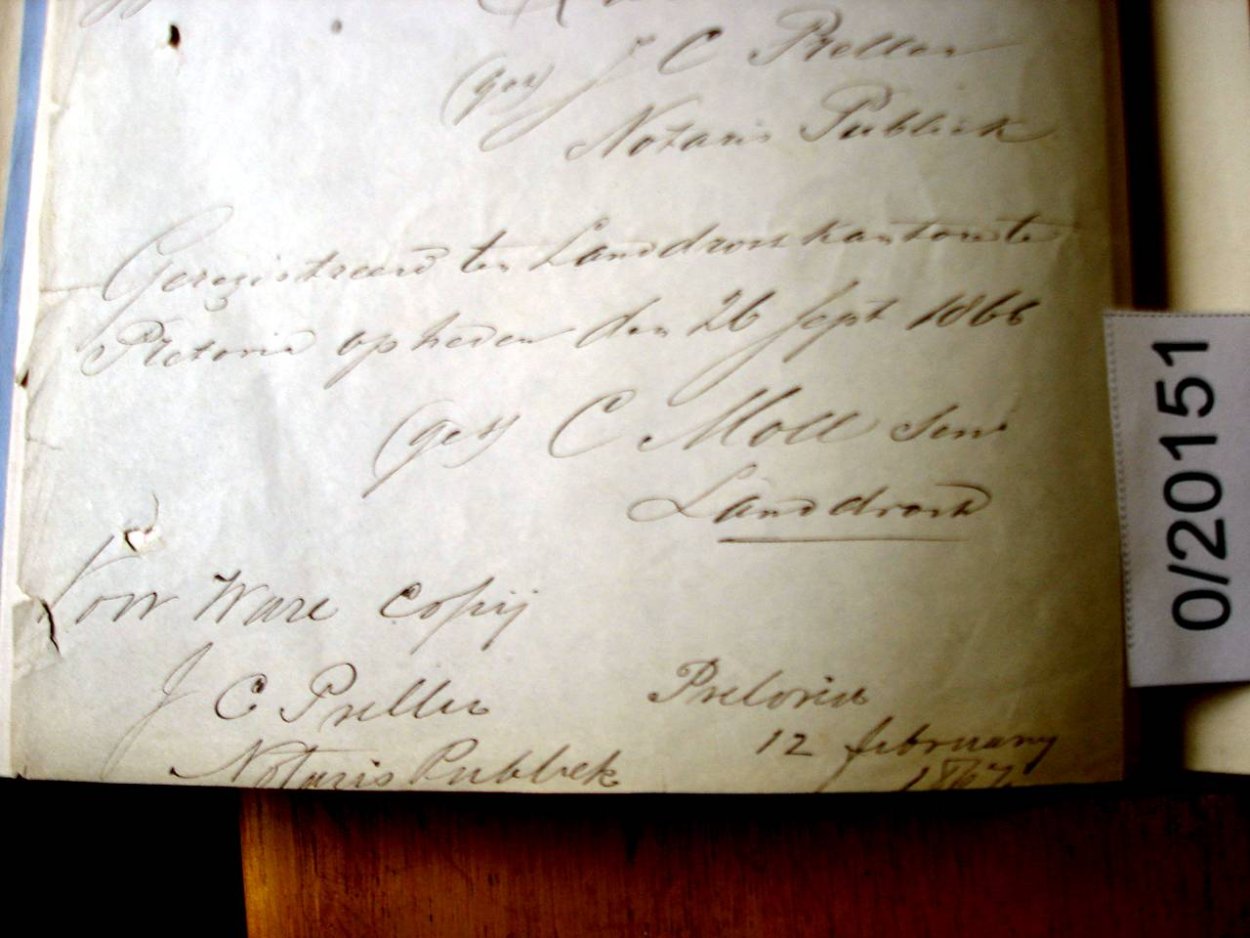 (get) J C Preller
Notaris Publiek
Geregistreerd ten Landdrostkantoore te
Pretoria op heden den 26 Sept 1866
(get) C Moll Senr
Landdrost
Voor Ware Copij
J C Preller
Pretoria
Notaris Publiek
12 february
1867
0/20151